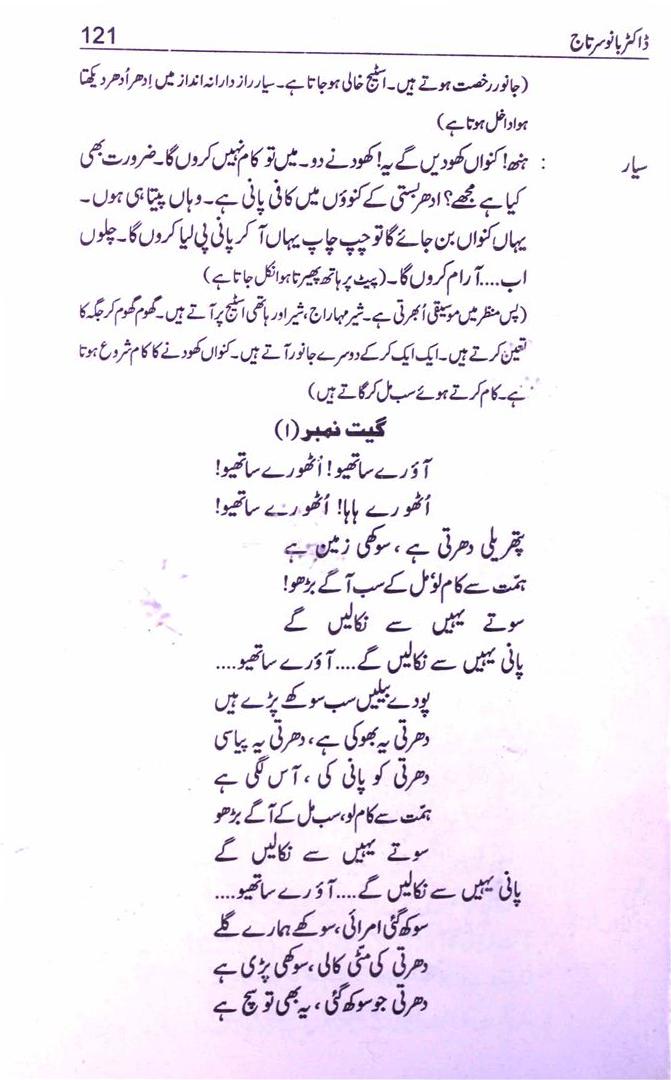 ڈاکٹر بانو سرتاج 121
(جانور رخصت ہوتے ہیں۔ اسٹیج خالی ہوجاتا ہے۔ سیار راز دارانہ انداز میں اِدھر اُدھر دیکھتا
ہوا داخل ہوتا ہے)
سیار : ہنھ! کنواں کھودیں گے یہ! کھودنے دو۔ میں تو کام نہیں کروں گا۔ ضرورت بھی
کیا ہے مجھے؟ ادھر بستی کے کنوؤں میں کافی پانی ہے۔ وہاں پیتا ہی ہوں۔
یہاں کنواں بن جائے گا تو چپ چاپ یہاں آ کر پانی پی لیا کروں گا۔ چلوں
اب.... آرام کروں گا۔ (پیٹ پر ہاتھ پھیرتا ہوا نکل جاتا ہے)
(پس منظر میں موسیقی اُبھرتی ہے۔ شیر مہاراج، شیر اور ہاتھی اسٹیج پر آتے ہیں۔ گھوم گھوم کر جگہ کا
تعین کرتے ہیں۔ ایک ایک کر کے دوسرے جانور آتے ہیں۔ کنواں کھودنے کا کام شروع ہوتا
ہے۔ کام کرتے ہوئے سب مل کر گاتے ہیں)
گیت نمبر (۱)
آؤ رے ساتھیو! اُٹھو رے ساتھیو!
اُٹھو رے ہاہا! اُٹھو رے ساتھیو!
پتھریلی دھرتی ہے، سوکھی زمین ہے
ہمّت سے کام لو مل کے سب آگے بڑھو!
سوتے یہیں سے نکالیں گے
پانی یہیں سے نکالیں گے.... آؤ رے ساتھیو....
پودے بیلیں سب سوکھے پڑے ہیں
دھرتی یہ بھوکی ہے، دھرتی یہ پیاسی
دھرتی کو پانی کی، آس لگی ہے
ہمّت سے کام لو، سب مل کے آگے بڑھو
سوتے یہیں سے نکالیں گے
پانی یہیں سے نکالیں گے.... آؤ رے ساتھیو....
سوکھ گئی امرائی، سوکھے ہمارے گلے
دھرتی کی مٹّی کالی، سوکھی پڑی ہے
دھرتی جو سوکھ گئی، یہ بھی تو سچ ہے